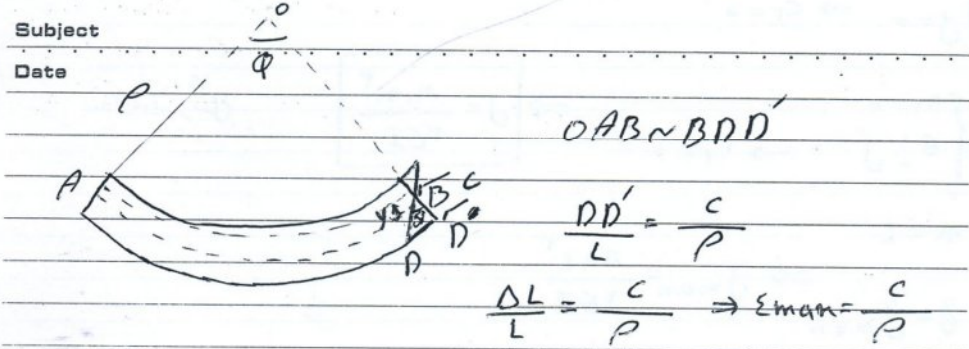 Subject
Date
O
φ
ρ
A
B
C
D
D'
OAB ~ BDD'
DD'/L = C/ρ
ΔL/L = C/ρ ⇒ εmax = C/ρ